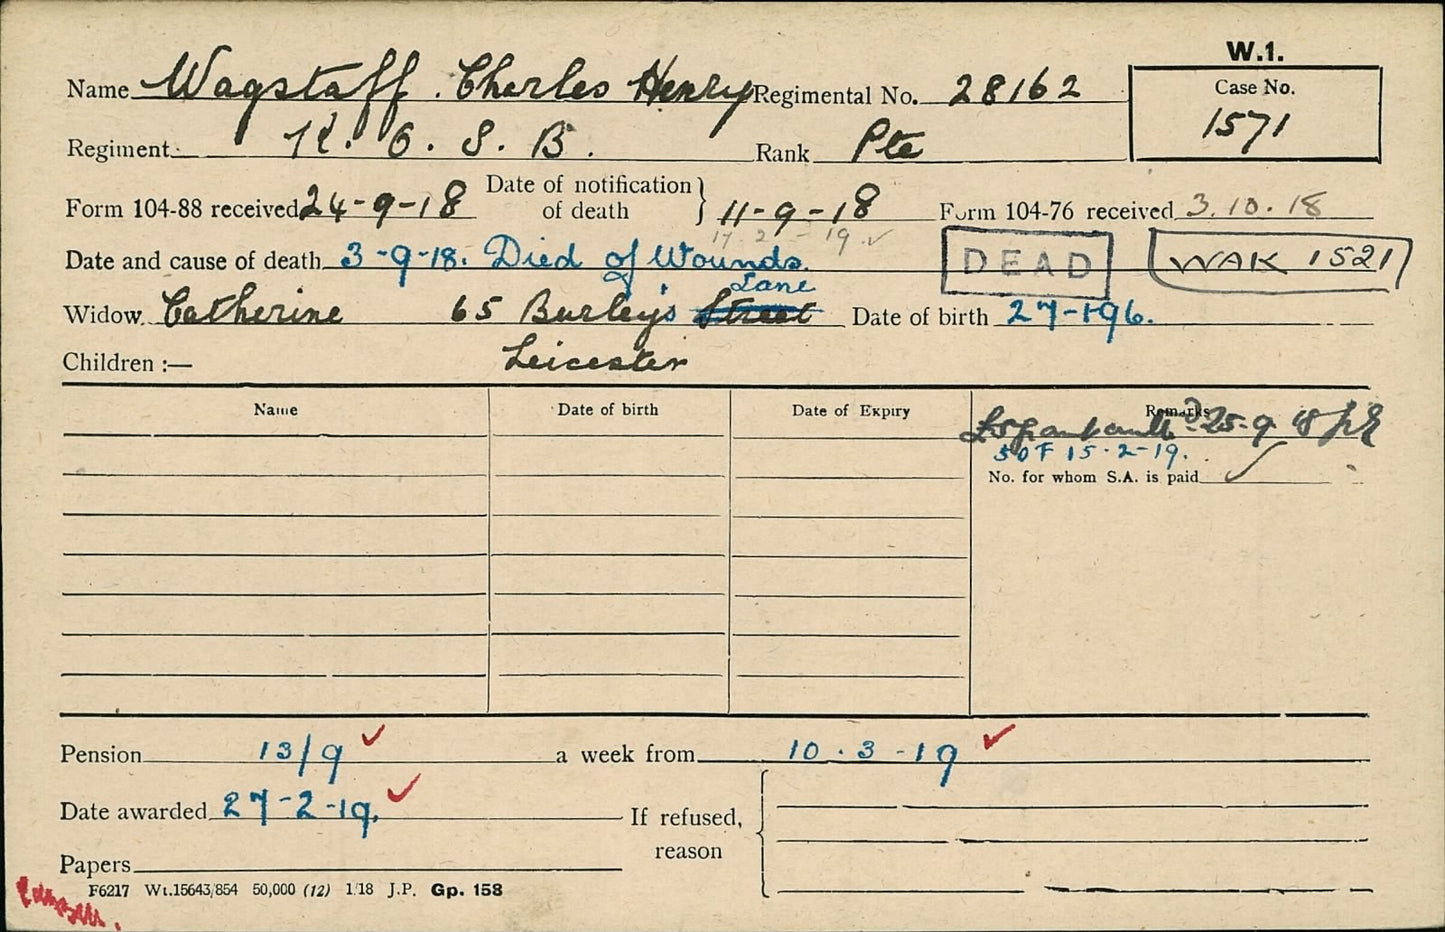 W.1.
Name Wagstaff. Charles Henry Regimental No. 28162
Case No.
1571
Regiment K. O. S. B. Rank Pte
Form 104-88 received 24-9-18 Date of notification of death } 11-9-18 Form 104-76 received 3.10.18
17-2-19
Date and cause of death 3-9-18. Died of Wounds.
DEAD
WAK 1521
Lane
Widow Catherine 65 Burley's Street Date of birth
Children :— Leicester
Name Date of birth Date of Expiry Remarks
25-9-18
SOF 15-2-19.
No. for whom S.A. is paid
Pension 13/9 a week from 10.3-19
Date awarded 27-2-19. If refused, reason
Papers
F6217 Wt.15643/854 50,000 (12) 1/18 J.P. Gp. 158